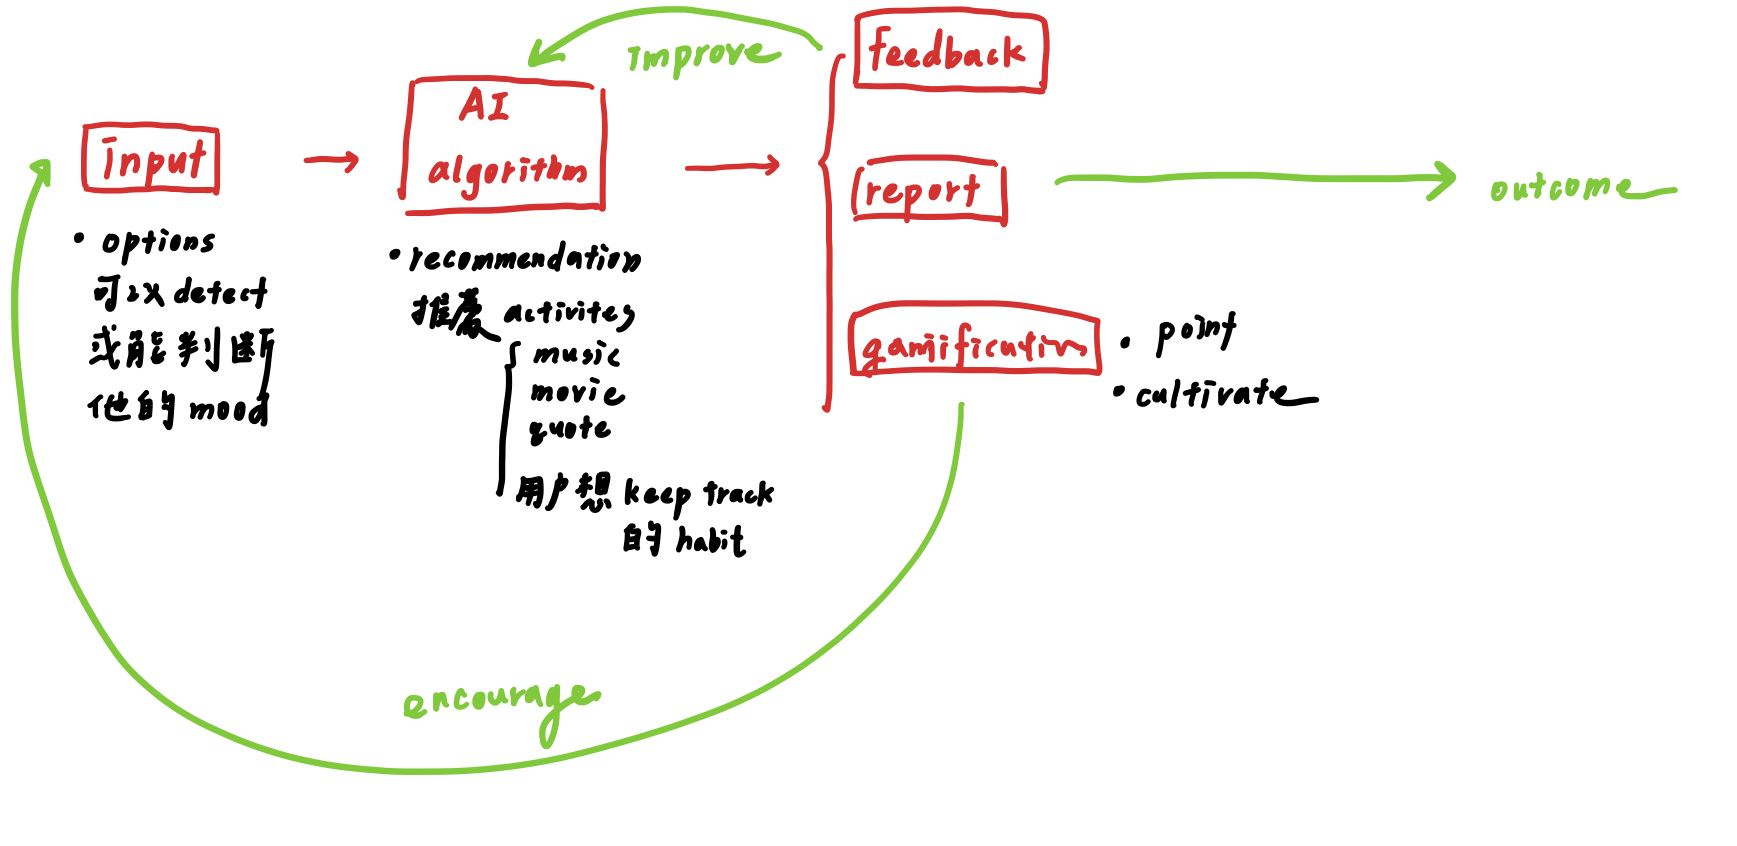 input
• options
可以 detect
或能判断
他的 mood
AI
algorithm
• recommendation
推荐 activites
music
movie
quote
用户想 keep track
的 habit
improve
feedback
report
outcome
gamification
• point
• cultivate
encourage